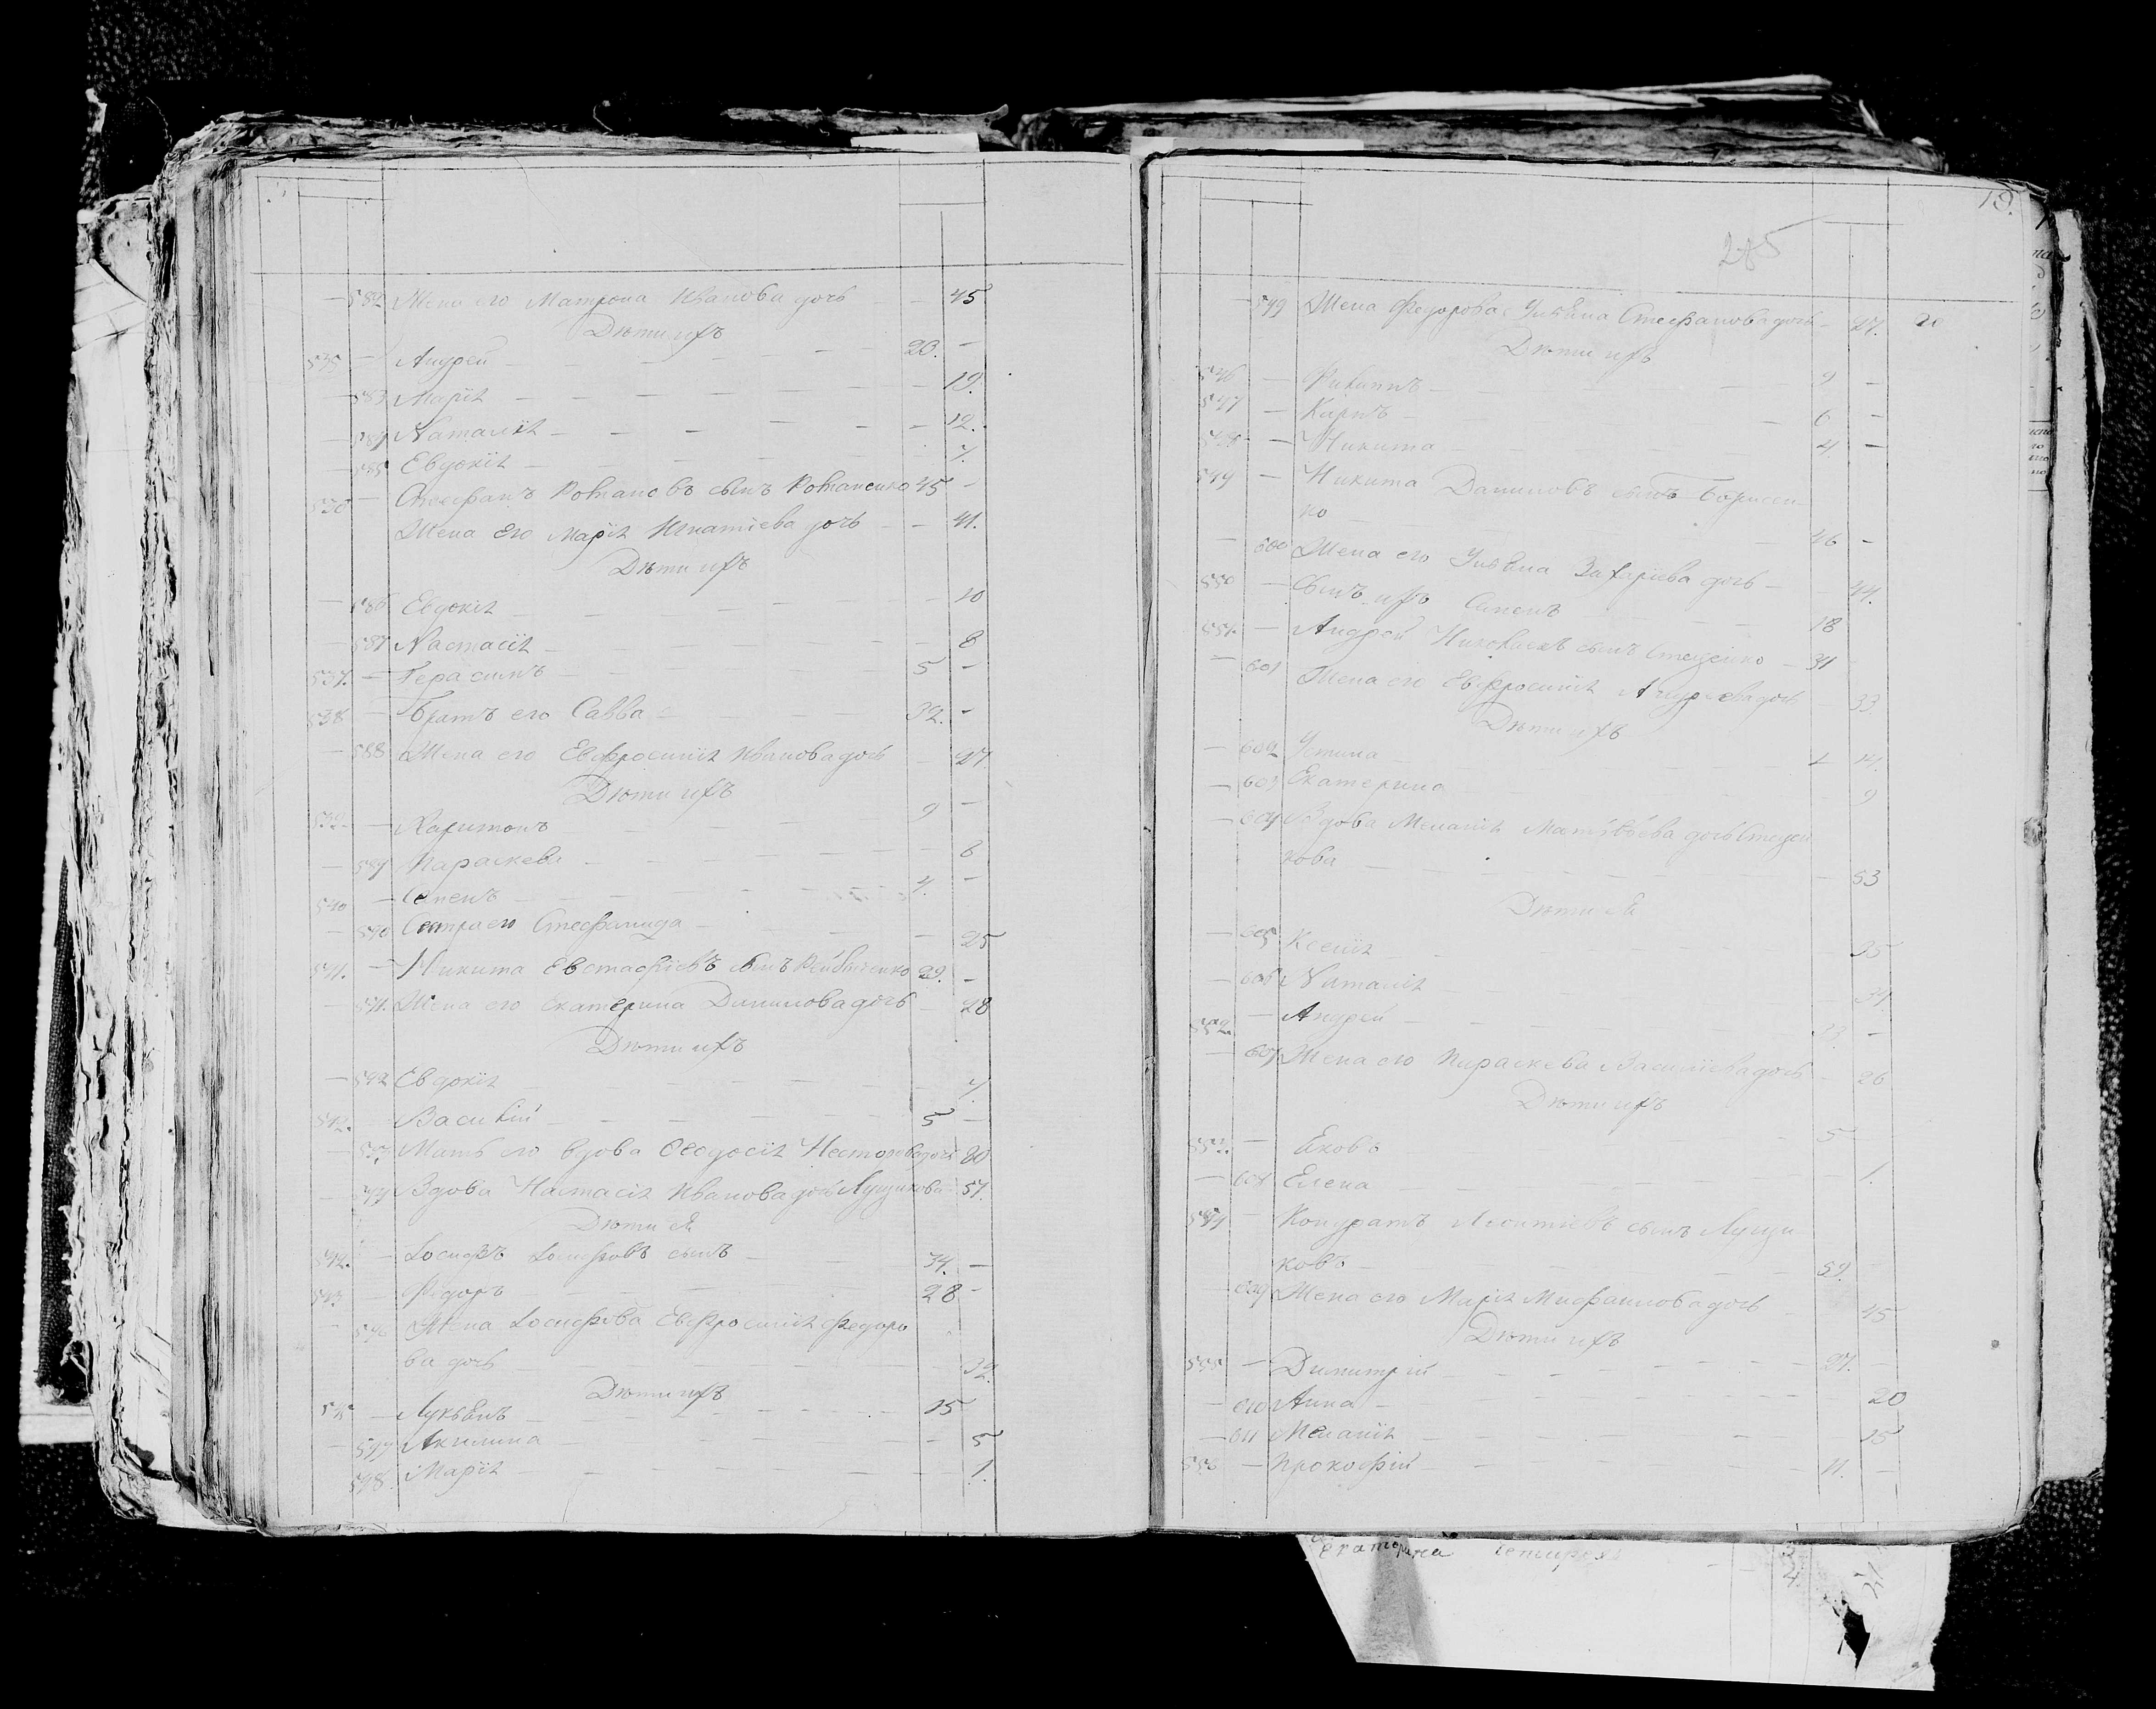 582 Жена его Матрона Иванова дочь — 45
Дѣти ихъ
535 — Андрей 20. —
— 583 Марія — 19.
— 584 Наталія — 12.
— 585 Евдокія — 7.
536 — Стефанъ Романовъ сынъ Романенко 45 —
Жена его Марія Игнатіева дочь — 41.
Дѣти ихъ
— 586 Евдокія — 10
— 587 Настасія — 8
537. — Герасимъ 5 —
538 — Братъ его Савва 32. —
— 588 Жена его Евфросинія Иванова дочь — 27
Дѣти ихъ
539 — Харитонъ 9 —
— 589 Параскева — 6
540 — Семенъ 4. —
— 590 Сестра его Стефанида — 25
541. — Никита Евстафіевъ сынъ 29. —
— 591. Жена его Екатерина Данилова дочь — 28
Дѣти ихъ
— 592 Евдокія — 7.
542. — Василій 5 —
— 593 Мать его вдова Феодосія Несторова дочь 80
— 594 Вдова Настасія Иванова дочь Лущикова 57.
Дѣти ея
542. — Іосифъ Іосифовъ сынъ 34. —
543 — Федоръ 28 —
— 596 Жена Іосифова Евфросинія Федоро
ва дочь — 32.
Дѣти ихъ
545 — Лукьянъ 15
— 597 Акилина — 5
598. Марія — 1.
18.
285
— 599 Жена Федорова Ульяна Стефанова дочь — 27. 20
Дѣти ихъ
546 — Филиппъ 9 —
547 — Карпъ 6 —
548 — Никита 4 —
549 — Никита Даниловъ сынъ Борисен
ко 46 —
— 600 Жена его Ульяна Захаріева дочь — 44.
550 — Сынъ ихъ Семенъ 18
551. — Андрей сынъ Стеценко — 31
— 601 Жена его Евфросинія Андреева дочь 33
Дѣти ихъ
— 602 Устина 14.
— 603 Екатерина 9
— 604 Вдова Меланія Матвѣева дочь Стецен
кова 53
Дѣти ея
— 605 Ксенія 35
— 606 Наталія 31
552. — Андрей 23. —
— 607 Жена его Параскева Василіева дочь 26
Дѣти ихъ
553. — Яковъ 5
— 608 Елена 1.
554 — Кондратъ Леонтіевъ сынъ Лущи
ковъ 59.
— 609 Жена его Марія дочь 45
Дѣти ихъ
555 — Димитрій 27. —
— 610 Анна 20
— 611 Меланія 15
556 — Прокофій 11. —
Екатерина